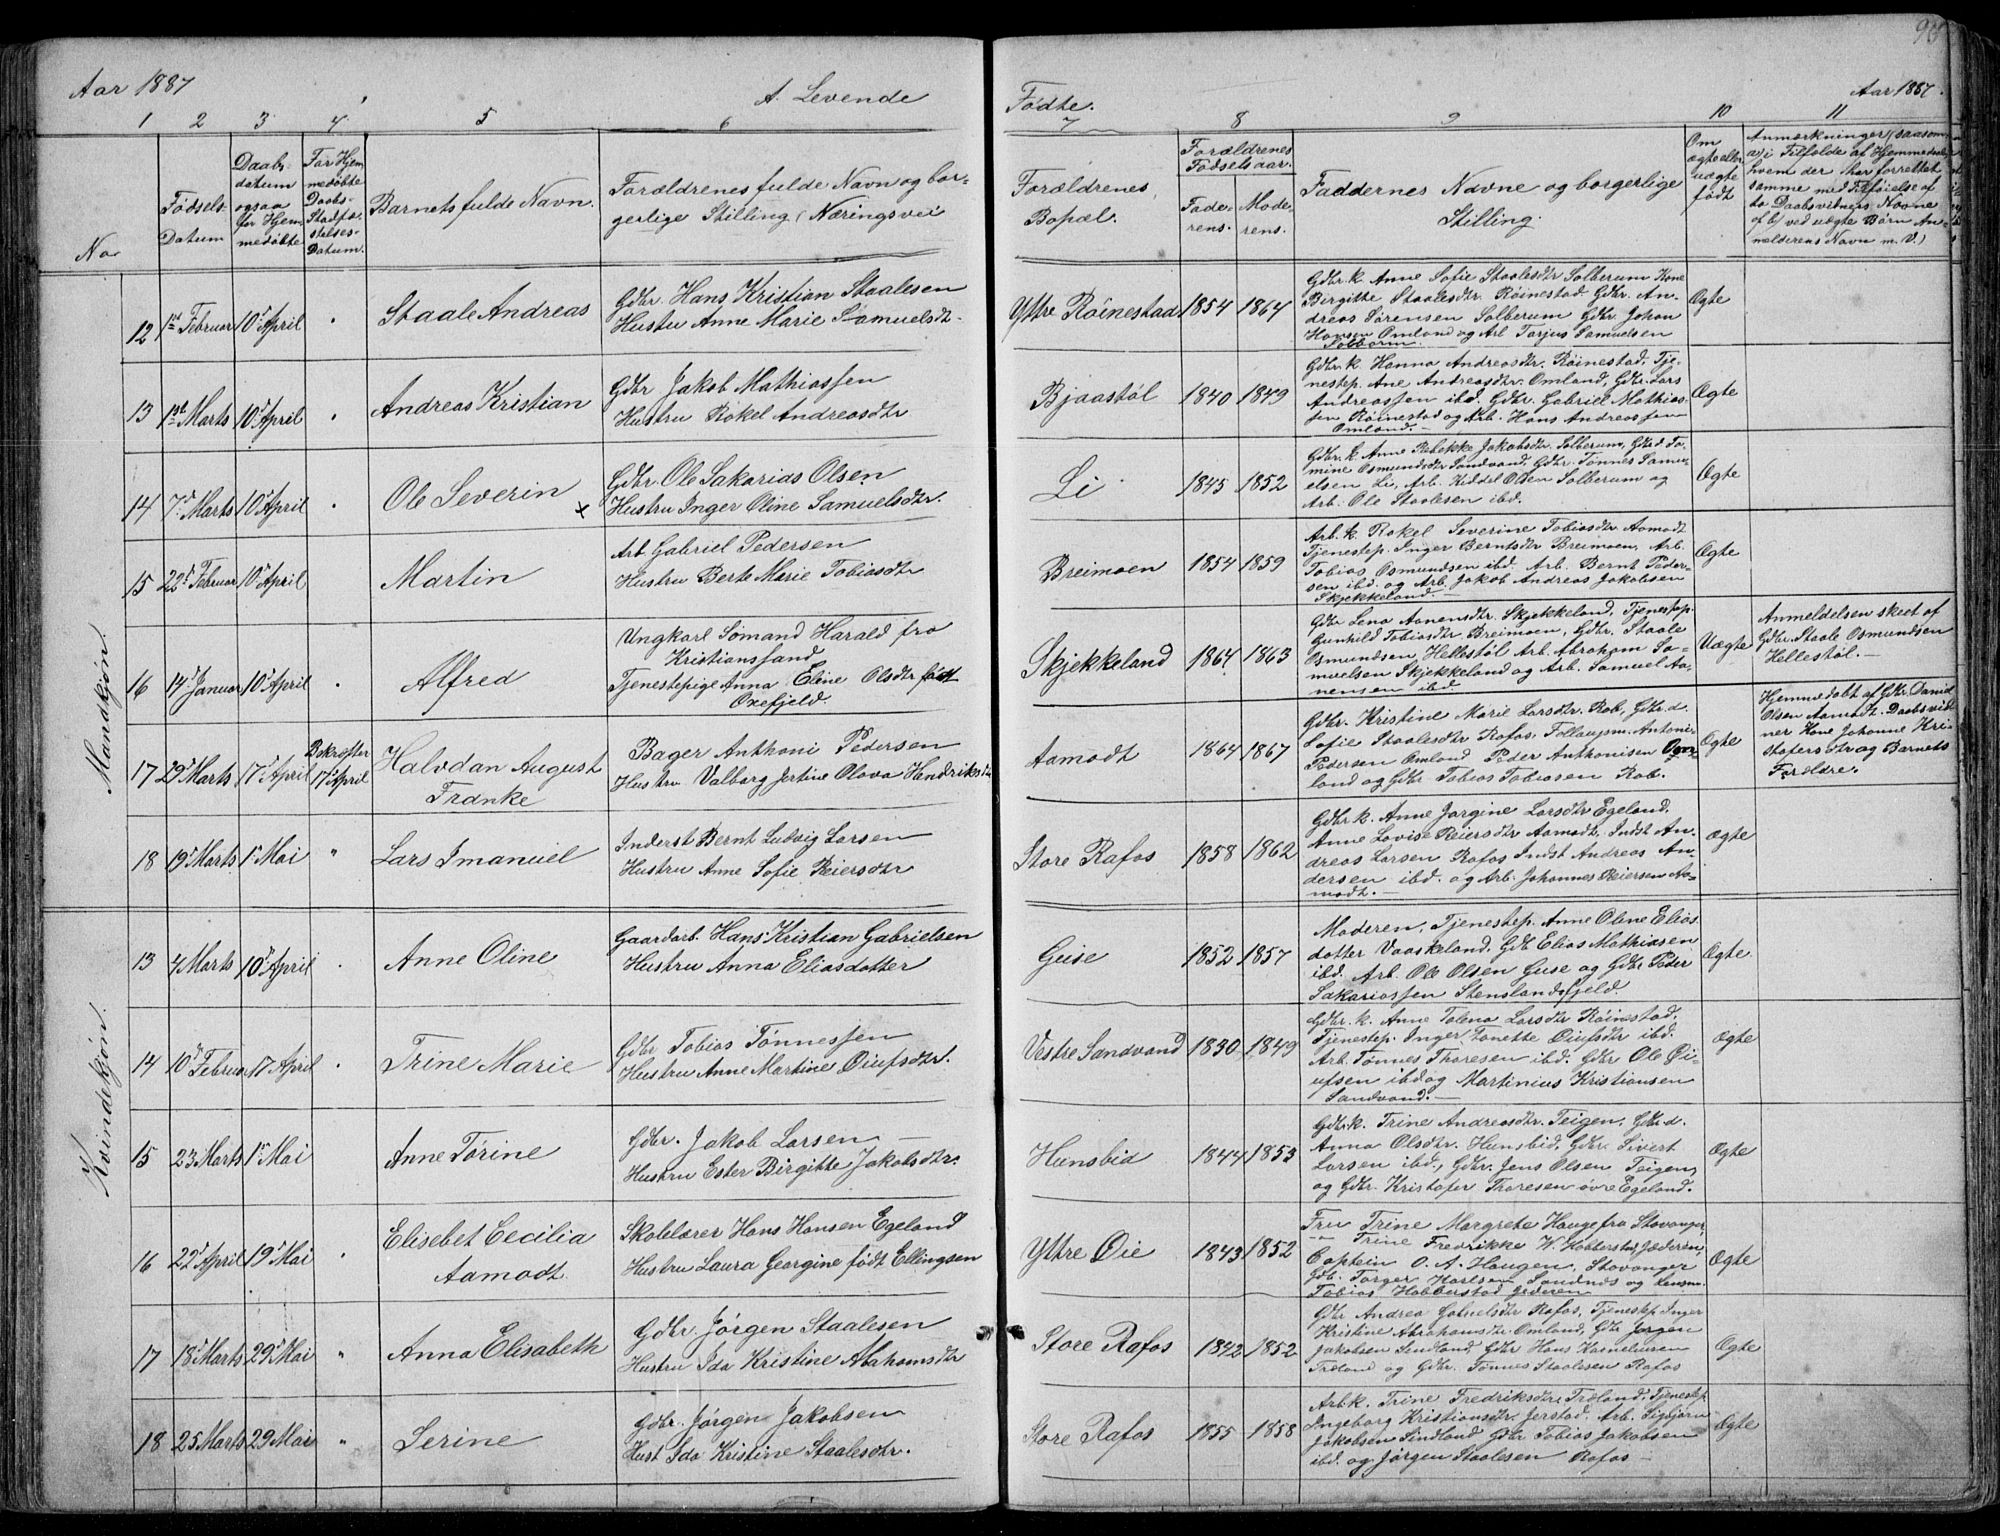 95
Aar 1887
A. Levende
Fødte.
Aar 1887.
1 2 3 4 5 6 7 8 9 10 11
No
Fødsels-
Datum
Daabs-
datum
ogsaa
for Hjem-
medøbte
For Hjem-
medøbte
Daabs-
Stadfæ-
stelses-
Datum.
Barnets fulde Navn.
Forældrenes fulde Navn og bor-
gerlige Stilling (Næringsvei
Forældrenes
Bopæl.
Forældrenes
Fødselsaar.
Fade-
rens.
Mode-
rens.
Faddernes Navne og borgerlige
Stilling.
Om
ægte eller
uægte
født
Anmærkninger (saasom
a) i Tilfælde af Hjemmedaab
hvem der har forrettet
samme med Tilføielse af
to Daabsvidners Navne
b) ved uægte Børn An-
melderens Navn m. V.)
Mandkjøn.
12 1ste Februar 10de April " Staale Andreas
Gdbr. Hans Kristian Staalesen
Hustru Anne Marie Samuelsdt.
Yttre Røinestad 1854 1864
Gdbr. k. Anne Sofie Staalesdtr Solberum Kone
Birgitte Staalesdtr. Røinestad Gdbr. An-
dreas Sørensen Solberum Gdbr Johan
Hansen Omland og Arb Tarjus Samuelsen
Solberum.
Ægte
13 1ste Marts 10de April " Andreas Kristian
Gdbr Jakob Mathiassen
Hustru Rakel Andreasdtr
Bjaastøl 1840 1849
Gdbr. k. Hanna Andreasdtr. Røinestad. Tje-
nestep. Ane Andreasdtr. Omland, Gdbr. Lars
Andreassen ibd. Gdbr. Gabriel Mathias-
sen Røinestad og Arb. Hans Andreassen
Omland.
Ægte
14 7de Marts 10de April " Ole Severin x
Gdbr Ole Sakarias Olsen
Hustru Inger Oline Samuelsdtr.
Li 1845 1852
Gdbr. k. Anne Rebekke Jakobsdtr. Solberum, Gbr. d. Ta-
mine Osmundsdtr Sandvand, Gdbr. Tønnes Samu-
elsen Li, Arb. Kiddel Olsen Solberum og
Arb. Ole Staalesen ibd.
Ægte
15 22de Februar 10de April Martin
Arb. Gabriel Pedersen
Hustru Berte Marie Tobiasdtr
Breimoen 1854 1859
Arb. k. Rakel Severine Tobiasdtr Aamodt
Tjenestep. Inger Berntsdtr Breimoen, Arb.
Tobias Osmundsen ibd. Arb. Bernt Peder-
sen ibd. og Arb. Jakob Andreas Jakobsen
Skjekkeland.
Ægte
16 14de Januar 10de April " Alfred
Ungkarl Sømand Harald fra
Kristianssand
Tjenestepige Anna Eline Olsdtr født
Oxefjeld.
Skjekkeland 1864 1863
Gdbr Lena Aanensdtr. Skjekkeland, Tjenestep.
Gunhild Tobiasdtr Breimoen, Gdbr. Staale
Osmundsen, Hellestøl Arb. Abraham Sa-
muelsen Skjekkeland og Arb. Samuel Aa-
nensen ibd.
Uægte
Anmeldelsen skeet af
Gdbr. Staale Osmundsen
Hellestøl.
17 29de Marts 17de April Bekræftet
17de April
Halvdan August
Franke
Bager Anthoni Pedersen
Hustru Valborg Jertine Olava Hendriksdtr
Aamodt 1864 1867
Gdbr. Kristine Marie Larsdtr. Rob, Gdbr. d.
Sofie Staalesdtr Rafos, Antoni
Pedersen Omland Peder Anthonisen Om-
land og Gdbr Tobias Tobiasen Rob.
Ægte
Hjemmedøbt af Gdbr. Daniel
Olsen Aamodt. Daabsvid-
ner Kone Johanne Kri-
stofersdtr og Barnets
Forældre.
18 19de Marts 1ste Mai " Lars Imanuel
Inderst Bernt Ludvig Larsen
Hustru Anne Sofie Reiersdtr
Store Rafos 1858 1862
Gdbr k. Anne Jorgine Larsdtr Egeland.
Anne Lovise Reiersdtr Aamodt, Indst An-
dreas Larsen Rafos Indst Andreas An-
dersen ibd. og Arb. Johannes Reiersen Aa-
modt.
Ægte
Kvindekjøn.
13 4 Marts 10de April " Anne Oline
Gaardarb. Hans Kristian Gabrielsen
Hustru Anna Eliasdotter
Guse 1852 1857
Moderen, Tjenestep. Anne Oline Elias-
dotter Vaaskeland, Gdb Elias Mathiasen
ibd. Arb. Ole Olsen Guse og Gdbr Peder
Sakariassen Stenslandsfjeld.
Ægte.
14 10de Februar 17 April " Trine Marie
Gdbr Tobias Tønnessen
Hustru Anne Martine Øiufsdtr.
Vestre Sandvand 1830 1849
Gdbr. k. Anne Talena Larsdtr Røinestad.
Tjenestep. Inger Tonette Øiufsdtr ibd.
Arb. Tønnes Thoresen ibd. Gdbr Ole Øi-
ufsen ibd og Martinius Kristiansen
Sandvand.
Ægte
15 23 Marts 1ste Mai Anne Tørine
Gdbr. Jakob Larsen
Hustru Ester Birgitte Jakobsdtr.
Hunsbid 1844 1853
Gdbr. k. Trine Andreasdtr. Teigen, Gdbr. d.
Anna Olsdtr. Hunsbid, Gdbr. Sivert
Larsen ibd., Gdbr. Jens Olsen Teigen
og Gdbr. Kristofer Thoresen øvre Egeland.
Ægte
16 22de April 19de Mai " Elisebet Cecilia
Aamodt
Skolelærer Hans Hansen Egeland
Hustru Laura Georgine født Ellingsen
Yttre Øie 1843 1852
Fru Trine Margrete Hauge fra Stavanger,
— " — Trine Fredrikke W. Hobberstad, Jæderen,
Captein O. A. Haugen, Stavanger
Gdb. Torger Karlsen Sandnæs og Lensm.
Tobias Hobberstad Jæderen
Ægte
17 18de Marts 29de Mai " Anna Elisabeth
Gdbr. Jørgen Staalesen
Hustru Ida Kristine Abahamsdtr
Store Rafos 1842 1852
Gdbr Andrea Samuelsdtr Rafos, Tjenestep Inger
Kristine Abrahamsdtr. Omland, Gdbr Jørgen
Jakobsen Sindland Gdbr Hans Korneliusen
Træland og Gdbr. Tønnes Staalesen Rafos
Ægte
18 25 Marts 29 Mai " Serine
Gdbr. Jørgen Jakobsen
Hust Ida Kristine Staalesdtr.
Store Rafos 1855 1858
Arb k. Trine Fredriksdtr. Træland, Tjenestep
Ingeborg Kristiansdtr. Jerstad. Arb. Sigbjørn
Jakobsen Sindland Gdbr Tobias Jakobsen
ibd. og Jørgen Staalesen Rafos
Ægte